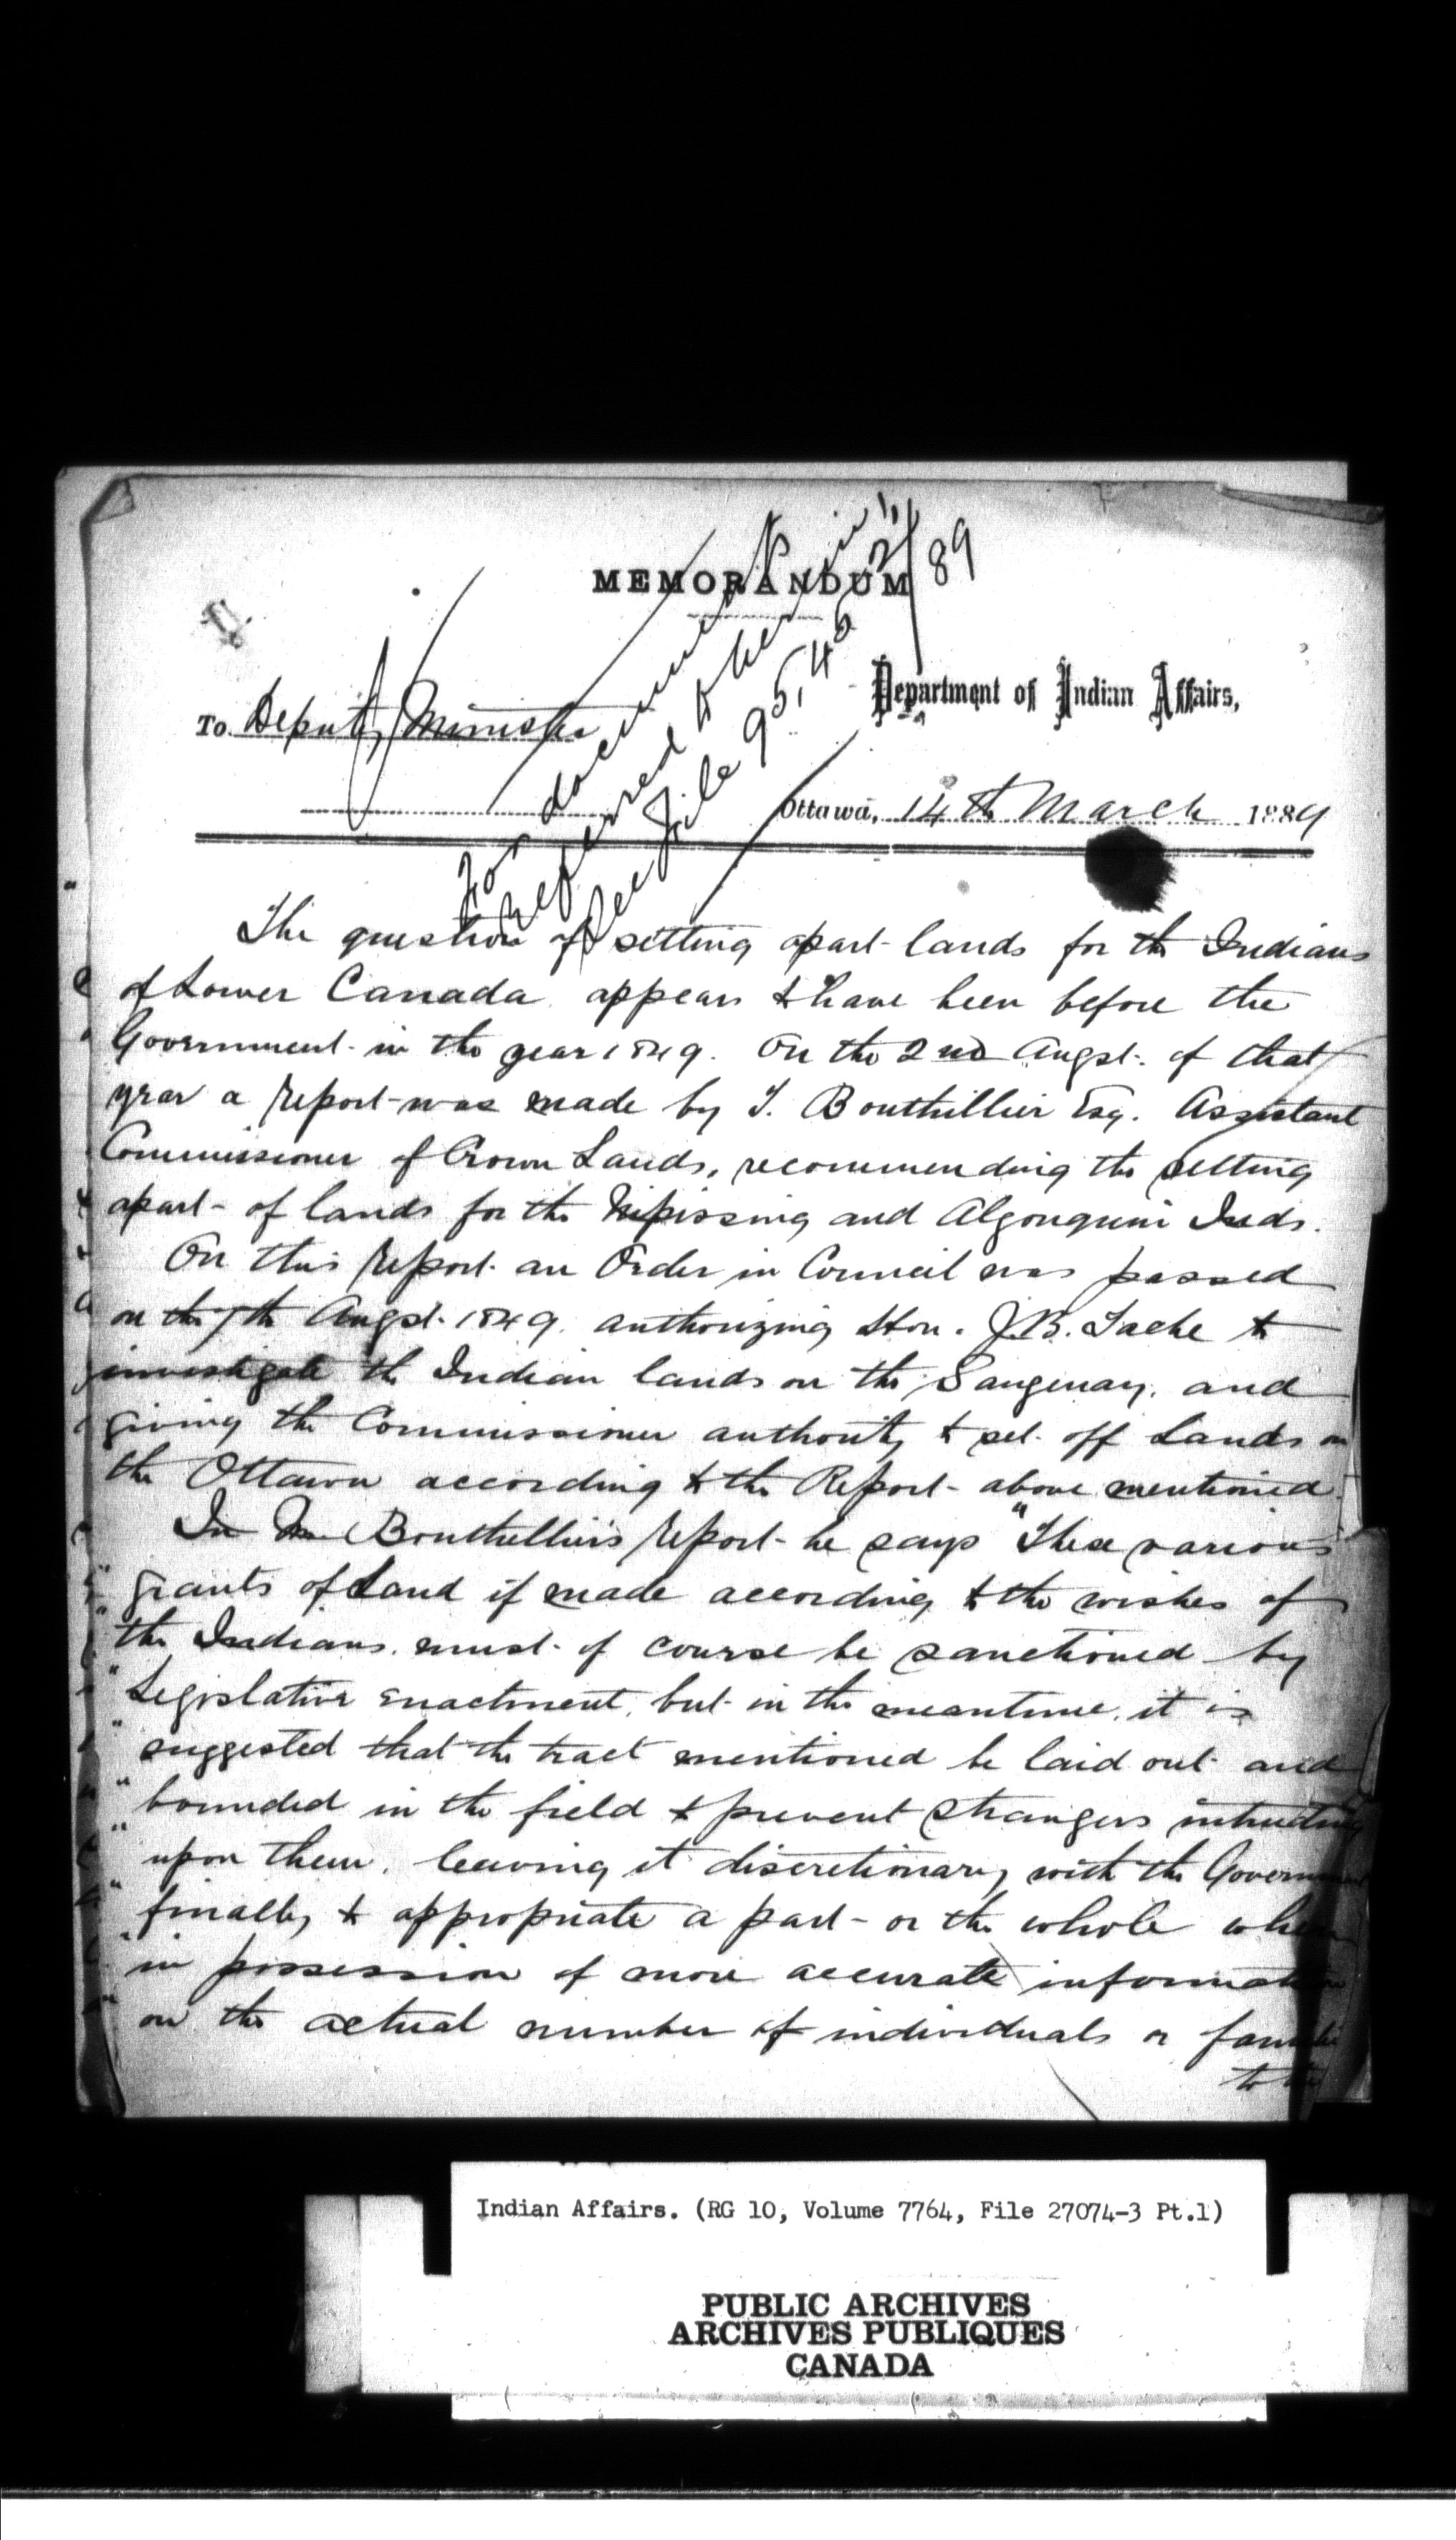 MEMORANDUM
For documents
referred to herein
see File 95,4 2/89
Department of Indian Affairs,
To Deputy Minister
Ottawa, 14th March 1889
The question of setting apart lands for the Indians
of Lower Canada appears to have been before the
Government in the year 1849. On the 2nd Augst. of that
year a report was made by T. Bouthillier Esq. Assistant
Commissioner of Crown Lands, recommending the setting
apart of lands for the Nipissing and Algonquin Inds.
On this report an Order in Council was passed
on the 7th Augst. 1849. authorizing Hon. J.B. Tache to
investigate the Indian lands on the Saugenay. and
giving the Commissioner authority to set off Lands on
the Ottawa according to the Report above mentioned.
In Mr Bouthillier's report he says "These various
" grants of Land if made according to the wishes of
" the Indians. must of course be sanctioned by
" Legislative enactment, but in the meantime, it is
" suggested that the tract mentioned be laid out and
" bounded in the field to prevent strangers intruding
" upon them. leaving it discretionary with the Government
" finally to appropriate a part or the whole when
" in possession of more accurate information
" on the actual number of individuals or families
to the
Indian Affairs. (RG 10, Volume 7764, File 27074-3 Pt.1)
PUBLIC ARCHIVES
ARCHIVES PUBLIQUES
CANADA